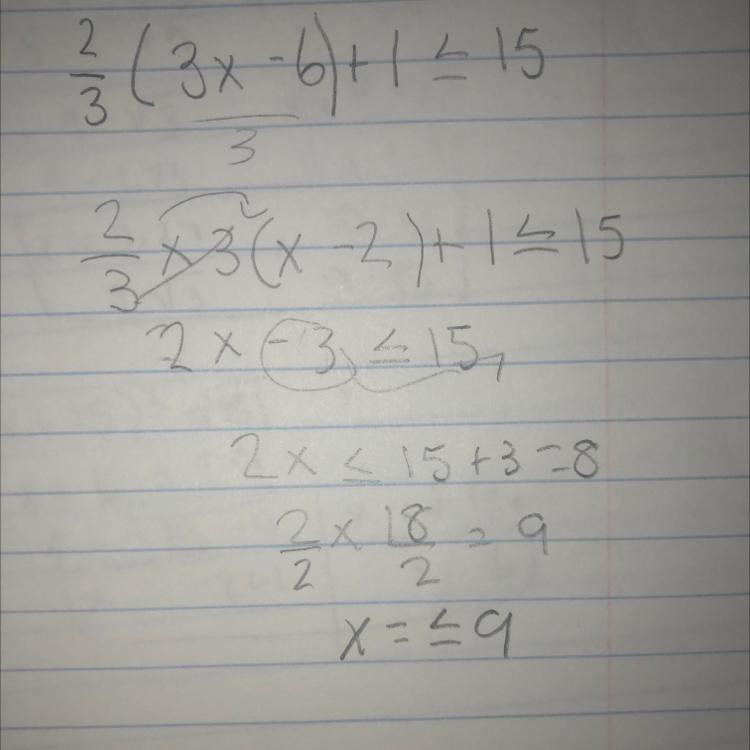 2/3 (3x - 6) + 1 ≤ 15
3
2/3 x 3 (x - 2) + 1 ≤ 15
2x - 3 ≤ 15
2x ≤ 15 + 3 = 8
2/2 x 18/2 = 9
x = ≤ 9